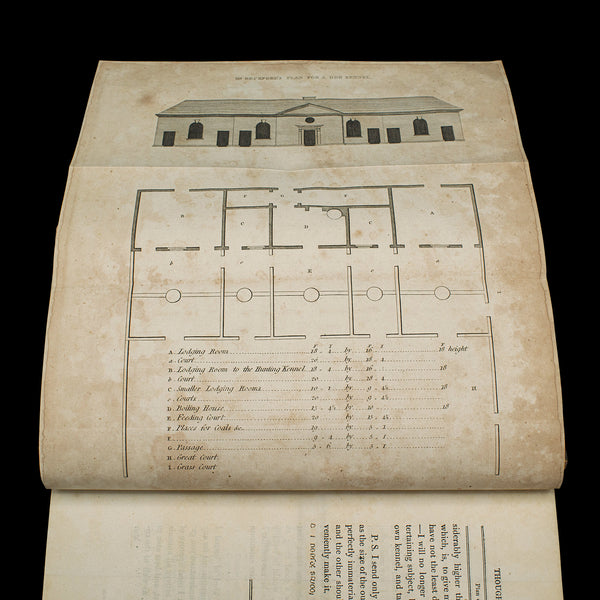 MR BECKFORD'S PLAN FOR A DOG KENNEL.
F G F
B C D C A
b c E c a
I
A. Lodging Room 18 . 4 by 16 . 1 18 height
a. Court 20 by 18 . 4
B. Lodging Room to the Hunting Kennel 18 . 4 by 16 18
b. Court 20 by 18 . 4
C. Smaller Lodging Rooms 10 . 1 by 9 . 4½ 18 H
c. Courts 20 by 9 . 4½
D. Boiling House 13 . 4½ by 10 18
E. Feeding Court 20 by 13 . 4½
F. Places for Coals &c. by 5 . 1
F. 9 . 4 by 5 . 1
G. Passage 5 . 6 by 5 . 1
H. Great Court
I. Grass Court
THOUGH
Plan
siderably higher th
which, is, to give m
have not the least d
—I will no longer
tertaining subject,
own kennel, and ta
P. S. I send only
as the size of the ou
perfectly immateria
and the other shou
veniently make it.